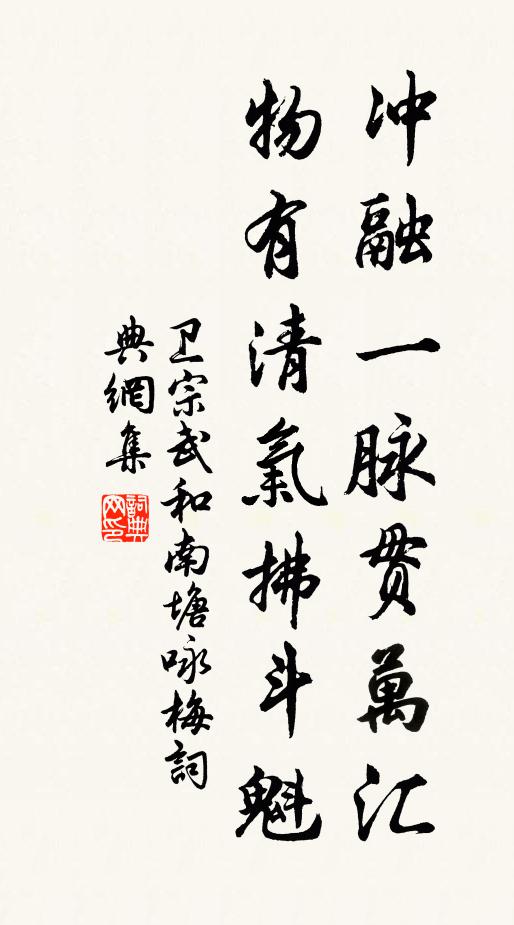 冲融一脉贯萬汇
物有清氣拂斗魁
卫宗武和南塘咏梅詞
典網集
詞典网印